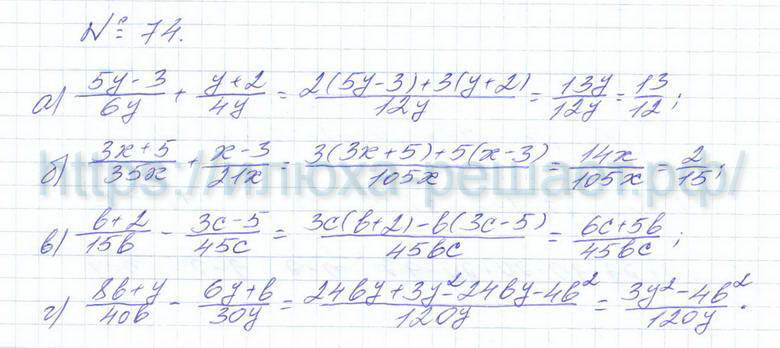 № 74.
а) (5y-3)/(6y) + (y+2)/(4y) = (2(5y-3)+3(y+2))/(12y) = (13y)/(12y) = 13/12;
б) (3x+5)/(35x) + (x-3)/(21x) = (3(3x+5)+5(x-3))/(105x) = (14x)/(105x) = 2/15;
в) (b+2)/(15b) - (3c-5)/(45c) = (3c(b+2)-b(3c-5))/(45bc) = (6c+5b)/(45bc);
г) (8b+y)/(40b) - (6y+b)/(30y) = (24by+3y²-24by-4b²)/(120y) = (3y²-4b²)/(120y).
https://плюха-решает.рф/